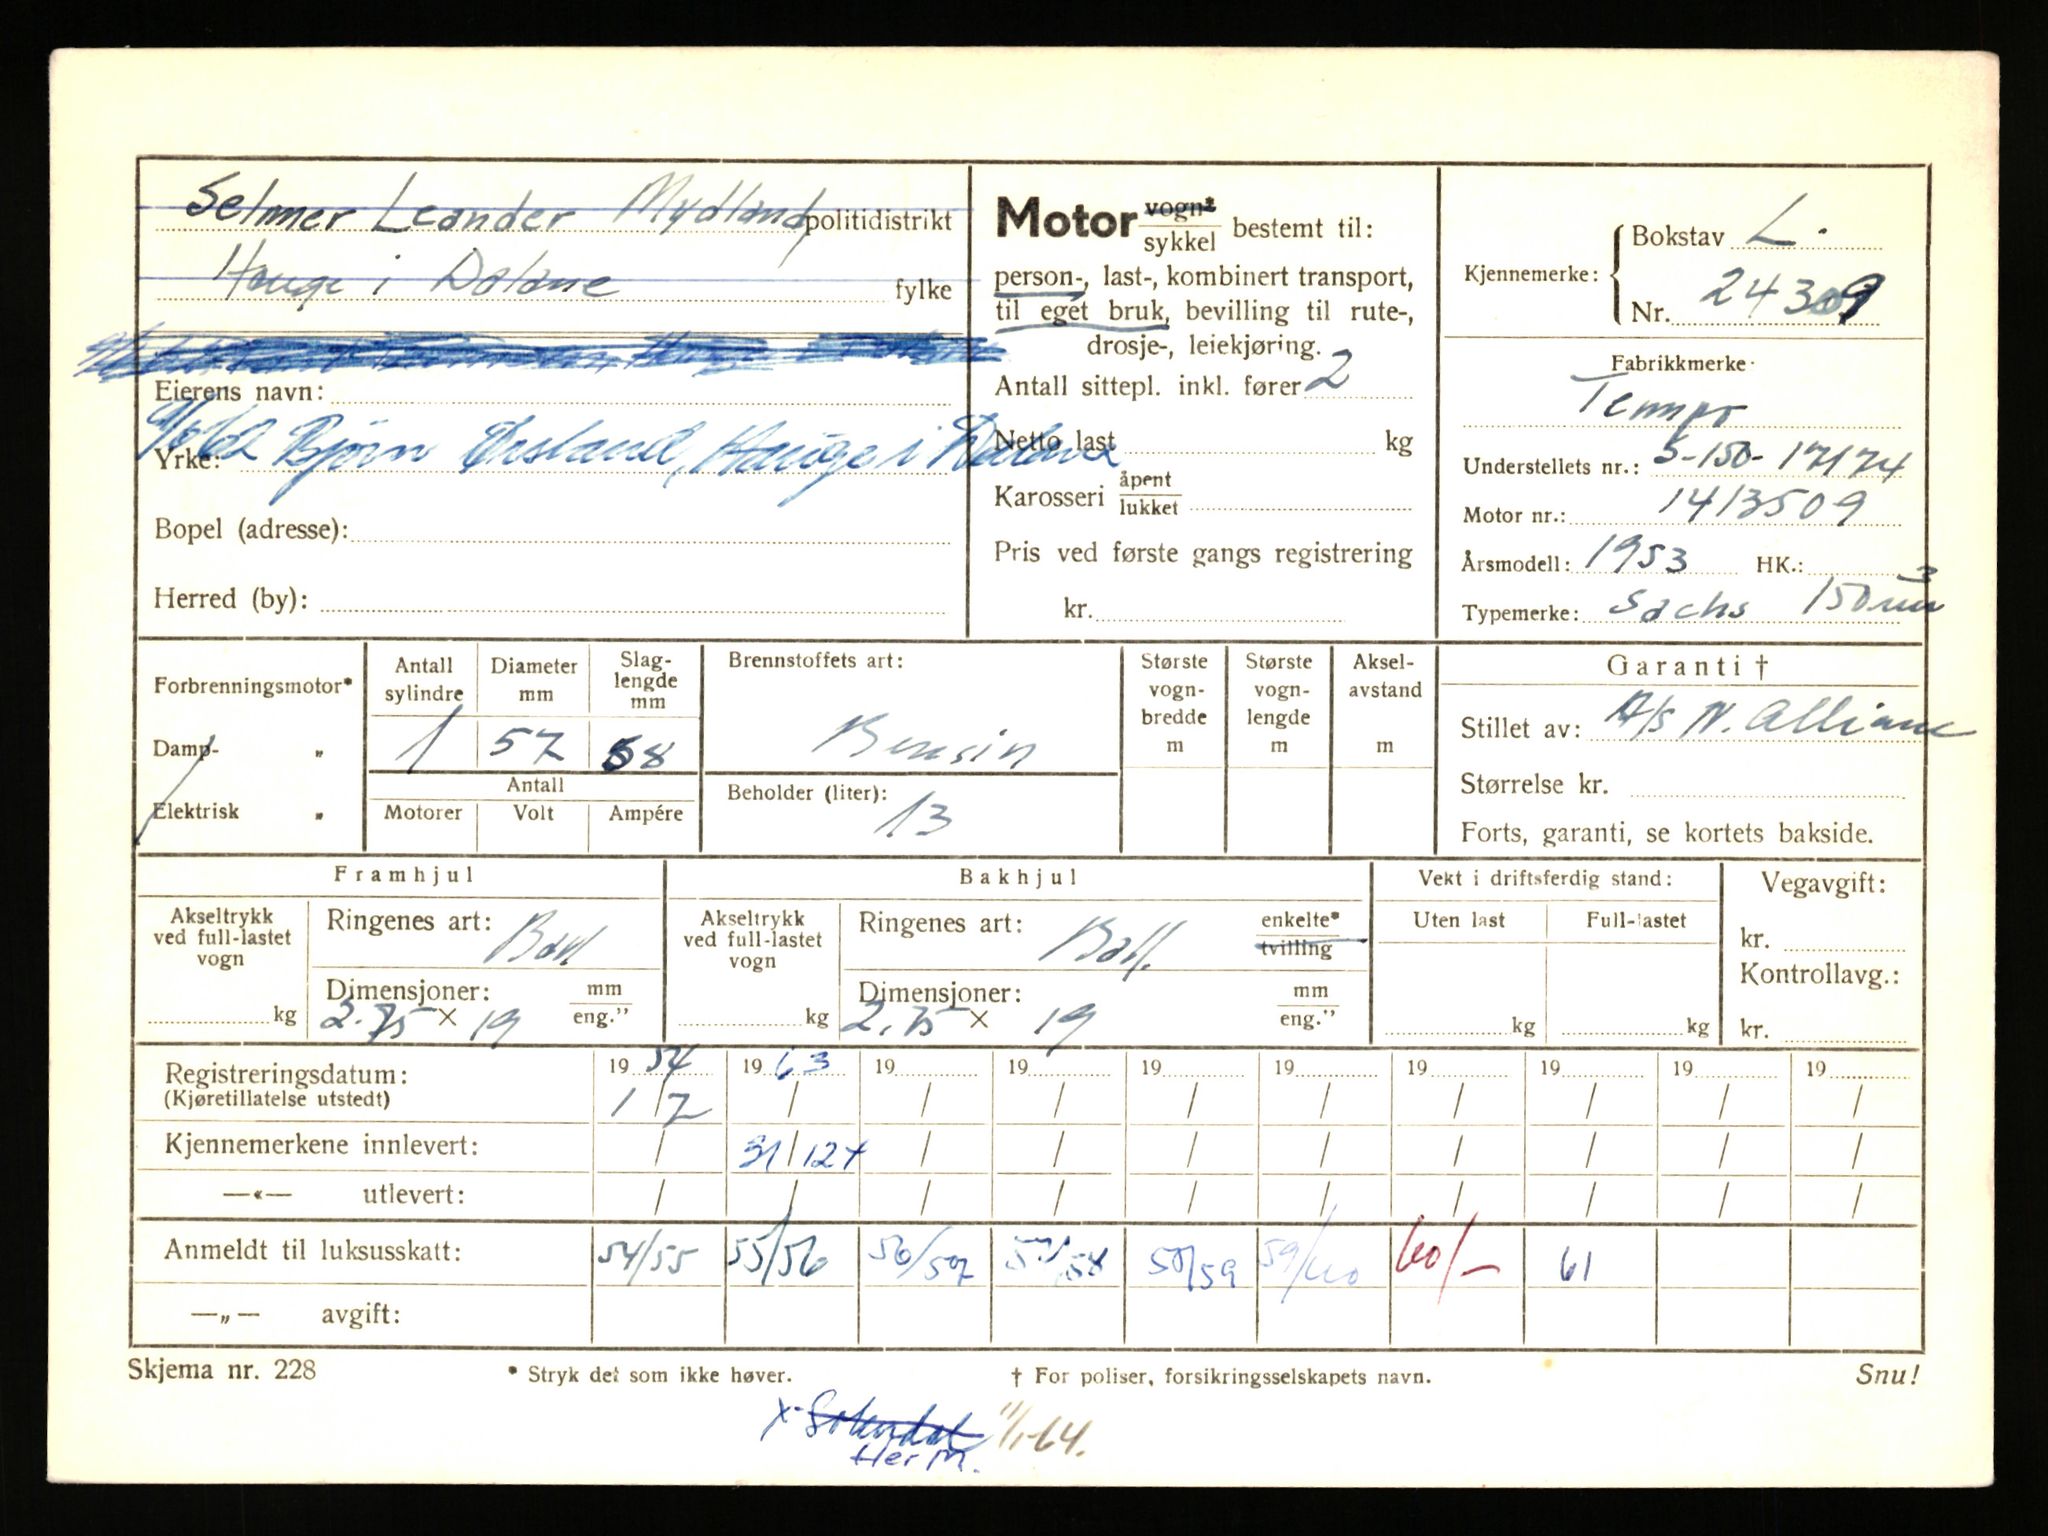 Selmer Leander Mydland politidistrikt
Hauge i Dalane fylke
Eierens navn:
Bjørn Ørsland, Hauge i Dalane
Yrke:
Bopel (adresse):
Herred (by):
Motor vogn* sykkel bestemt til:
person-, last-, kombinert transport,
til eget bruk, bevilling til rute-,
drosje-, leiekjøring.
Antall sittepl. inkl. fører 2
Netto last kg
Karosseri åpent lukket
Pris ved første gangs registrering
kr.
Kjennemerke: Bokstav L.
Nr. 24309
Fabrikkmerke
Tempo
Understellets nr.: 5-150-17174
Motor nr.: 1413509
Årsmodell: 1953 HK.:
Typemerke: Sachs 150 mm3
Forbrenningsmotor*
Damp- „
Elektrisk „
Antall sylindre
Diameter mm
Slag-lengde mm
1 57 58
Antall
Motorer Volt Ampére
Brennstoffets art:
Bensin
Beholder (liter):
13
Største vogn-bredde m
Største vogn-lengde m
Aksel-avstand m
Garanti †
Stillet av: A/s N. Alliance
Størrelse kr.
Forts, garanti, se kortets bakside.
Framhjul
Akseltrykk ved full-lastet vogn
kg
Ringenes art: Ball
Dimensjoner: mm eng."
2.75 × 19
Bakhjul
Akseltrykk ved full-lastet vogn
kg
Ringenes art: Ball. enkelte* tvilling
Dimensjoner: mm eng."
2.75 × 19
Vekt i driftsferdig stand:
Uten last Full-lastet
kg kg
Vegavgift:
kr.
Kontrollavg.:
kr.
Registreringsdatum: 19 54 19 63 19 19 19 19 19 19 19 19
(Kjøretillatelse utstedt) 1/7 / / / / / / / / /
Kjennemerkene innlevert: / 31/12 x / / / / / / / /
—«— utlevert: / / / / / / / / / /
Anmeldt til luksusskatt: 54/55 55/56 56/57 57/58 58/59 59/60 60/- 61
—„— avgift:
Skjema nr. 228 * Stryk det som ikke høver. † For poliser, forsikringsselskapets navn. Snu!
x- Sokndal 11/1-64.
Herm.